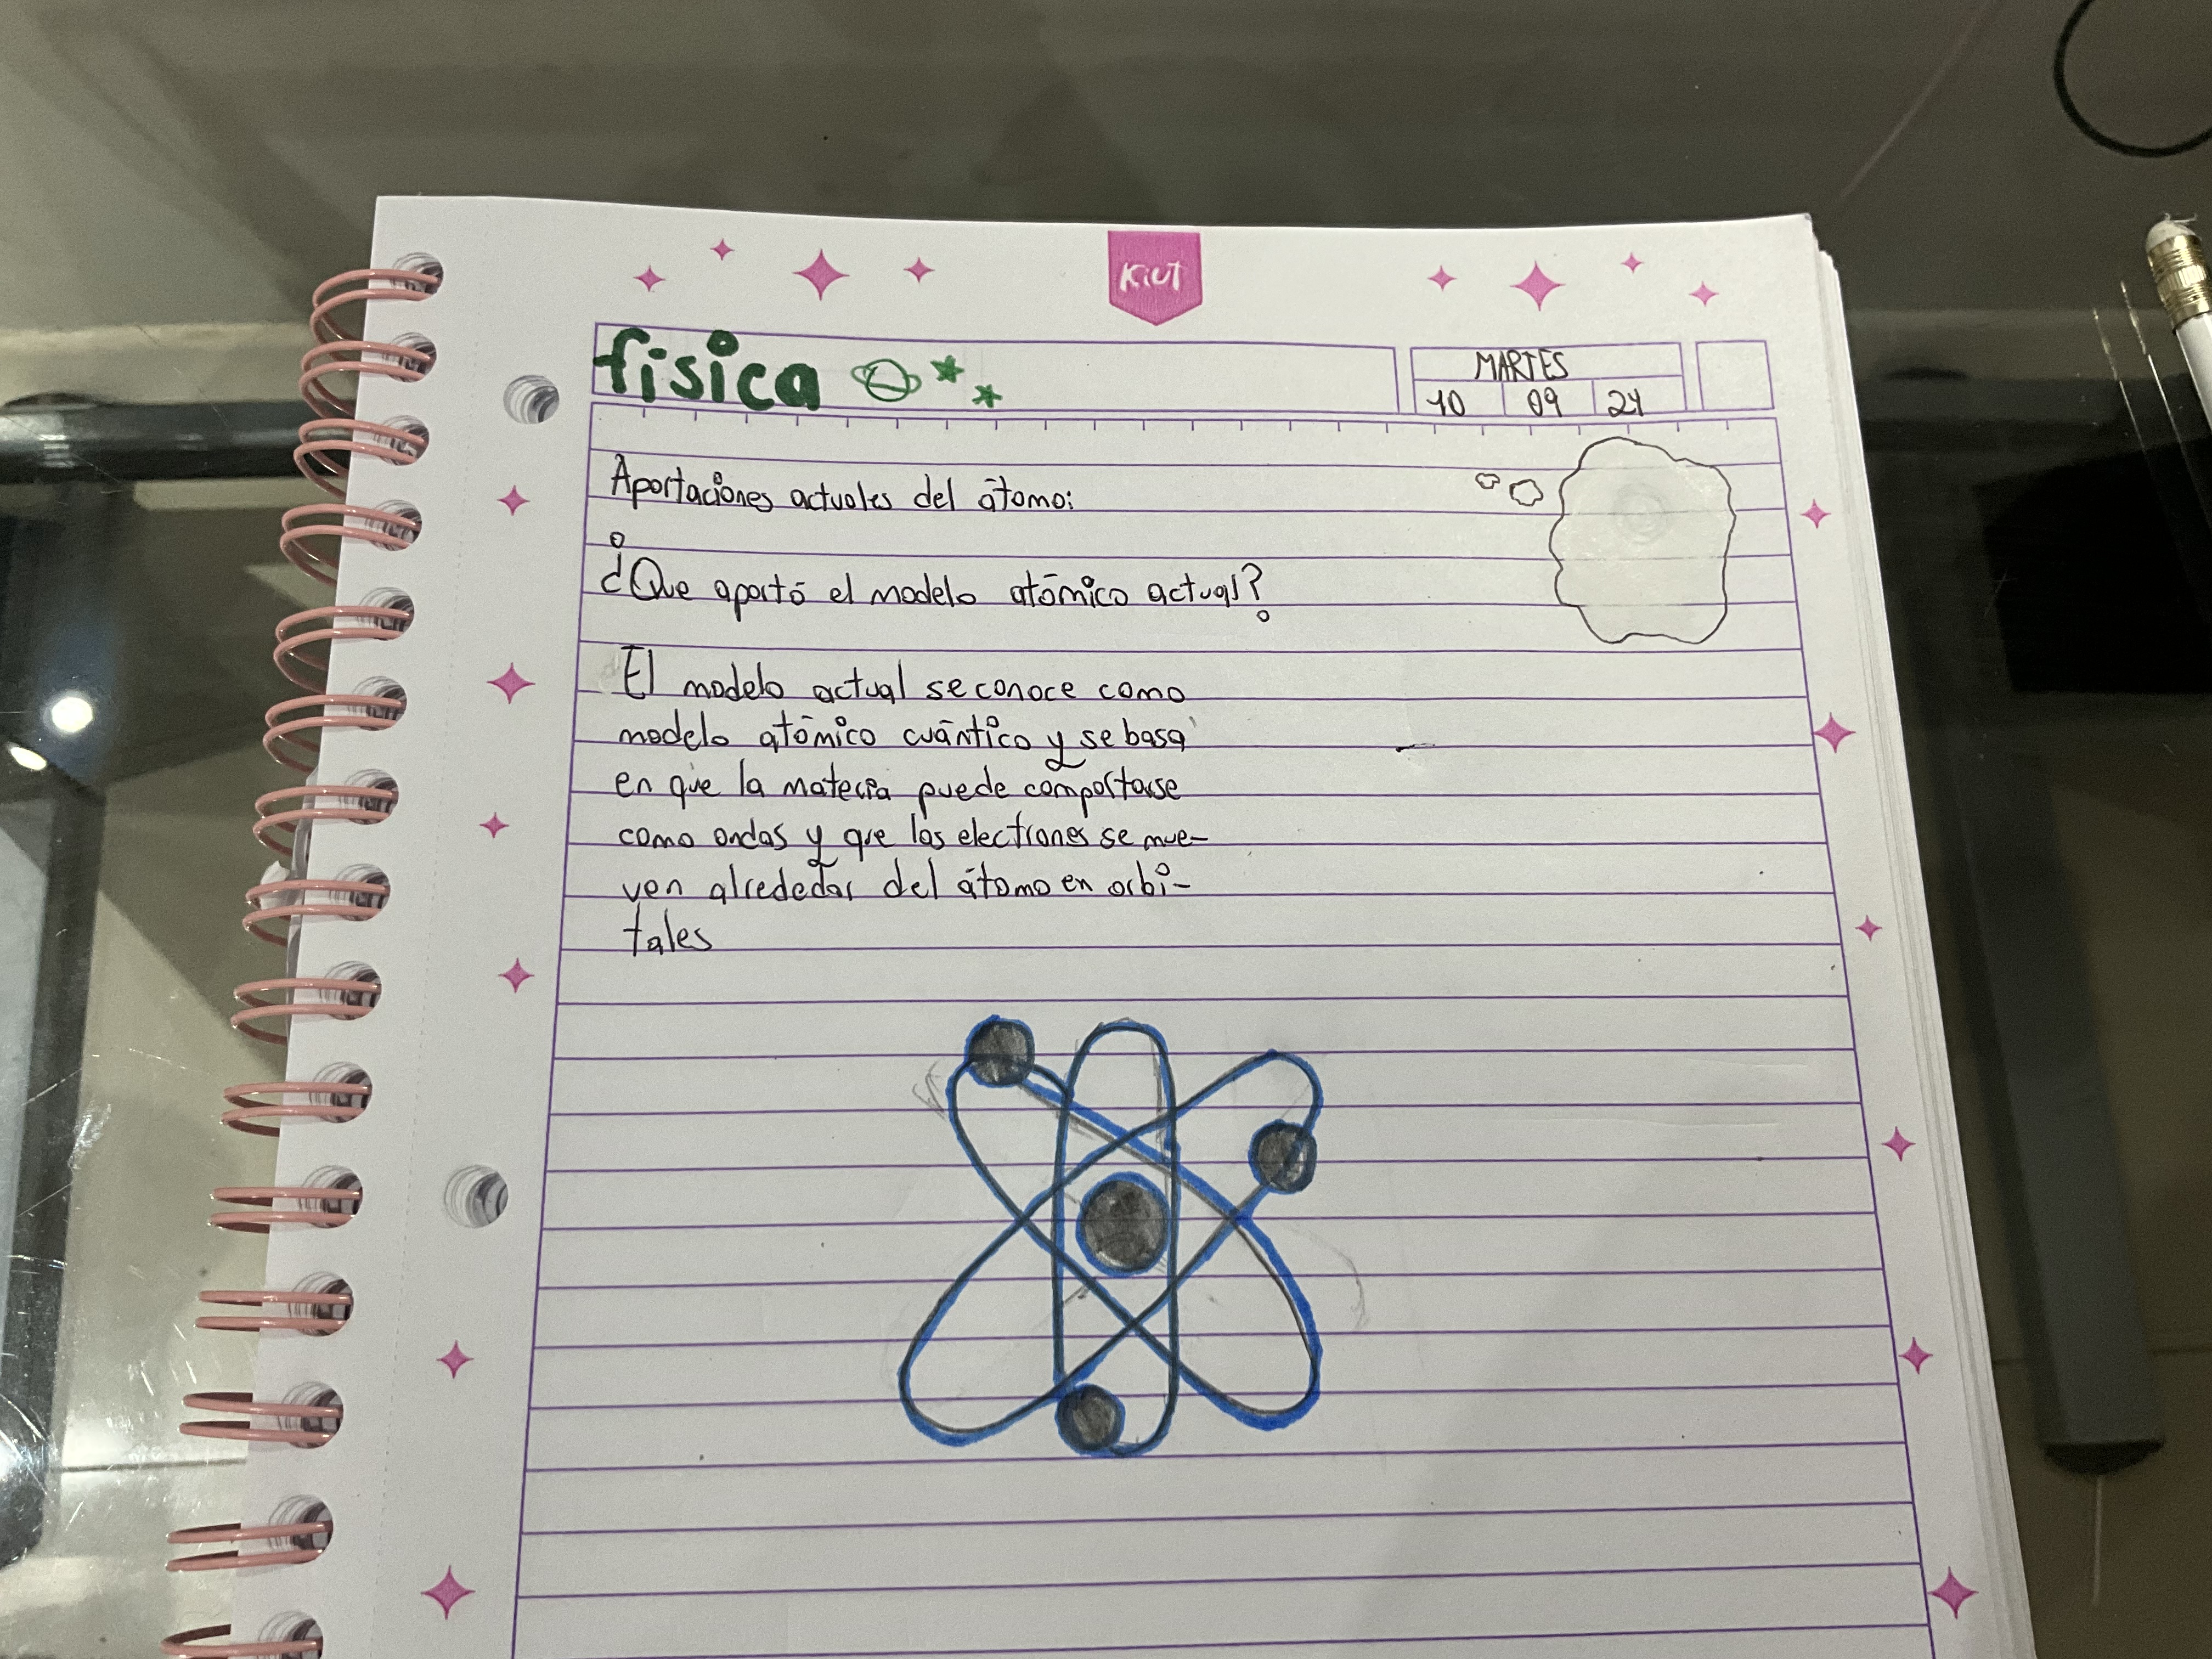 Kiut
física
MARTES
10 09 24
Aportaciones actuales del átomo:
¿Que aportó el modelo atómico actual?
El modelo actual se conoce como
modelo atómico cuántico y se basa
en que la materia puede comportarse
como ondas y que los electrones se mue-
ven alrededor del átomo en orbi-
tales